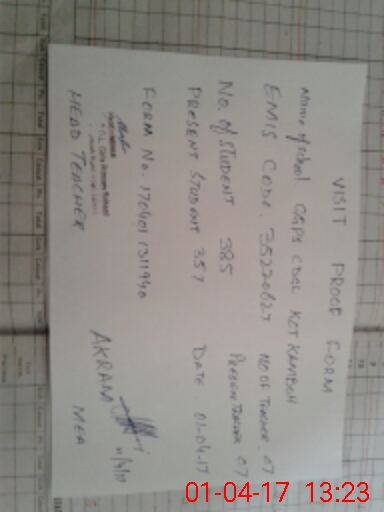 VISIT PROOF FORM
Name of school GGPS KOT KAMBOH
EMIS CODE. 35220627 NO OF TEACHER 07
No. of STUDENT 385 PRESENT TEACHER 07
PRESENT STUDENT 357 DATE 01-04-17
FORM No. 170401 1311940
HEAD TEACHER
AKRAM
MEA
01-04-17 13:23